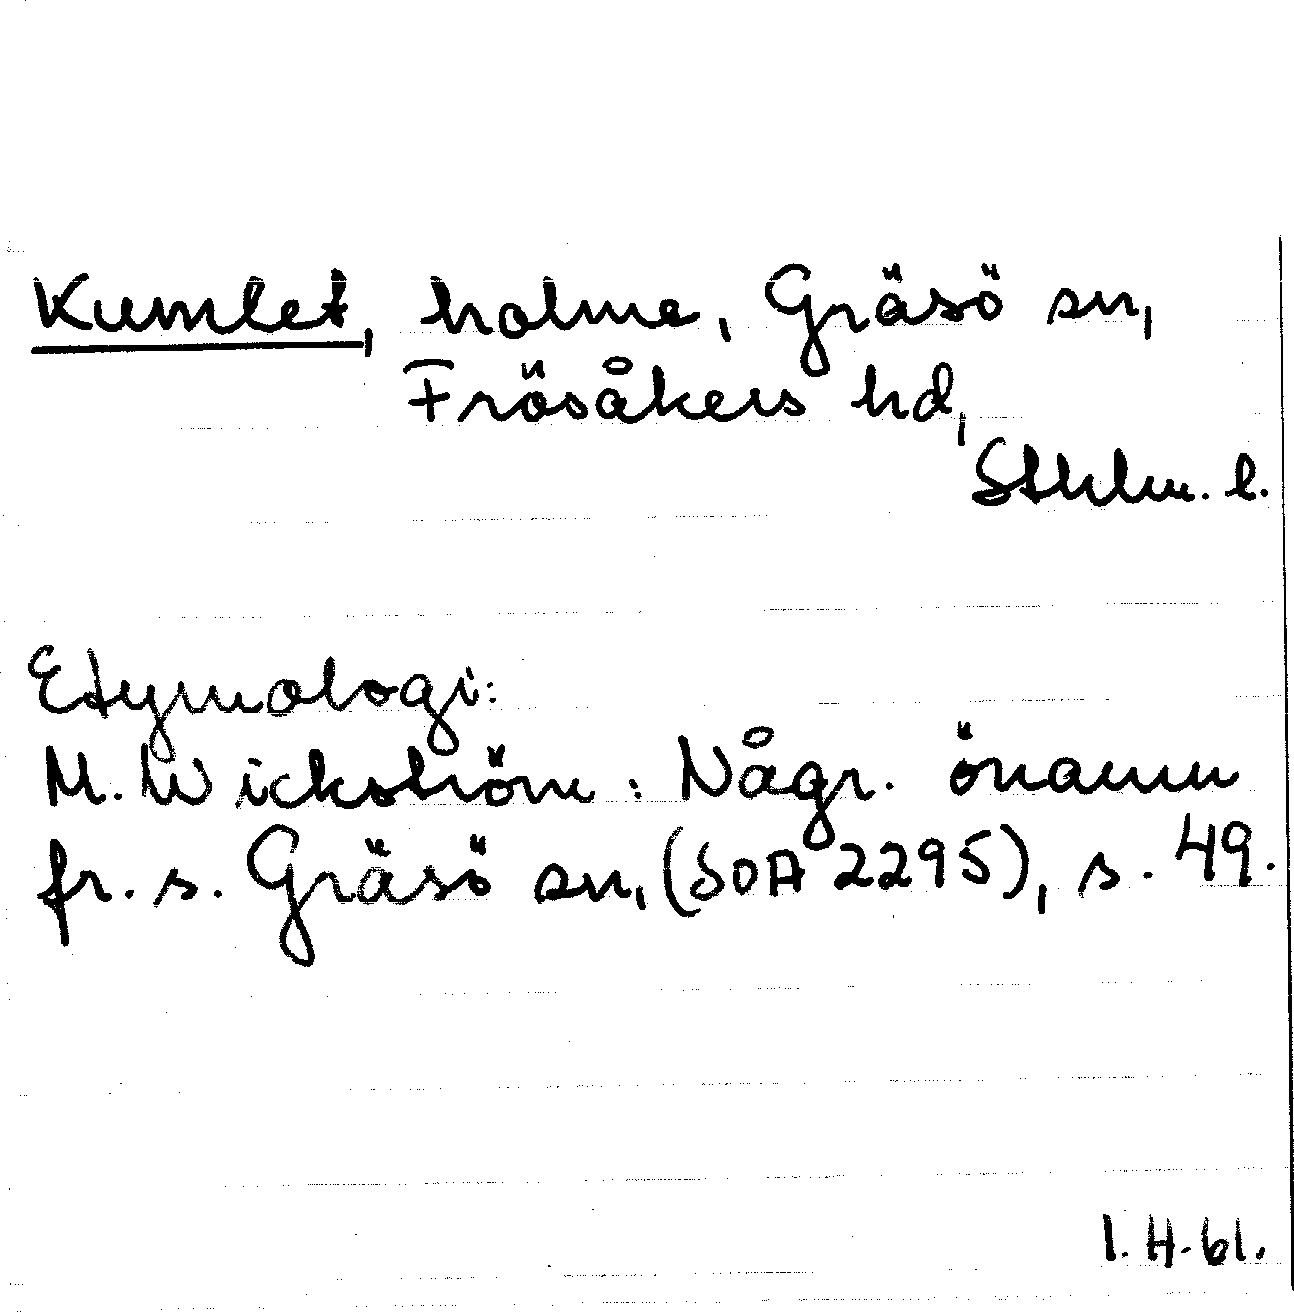 Kumlet, holme, Gräsö sn,
Frösåkers hd,
Sthlm. l.
Etymologi:
M. Wickström: Någr. önamn
fr. s. Gräsö sn, (SOA 2295), s. 49.
I. H. 61.